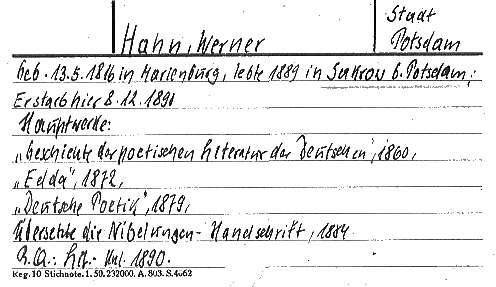 Stadt
Hahn, Werner Potsdam
Geb. 13.5.1816 in Marienburg, lebte 1889 in Sakrow b. Potsdam,
Er starb hier 8.12.1890
Hauptwerke:
„Geschichte der poetischen Literatur der Deutschen", 1860,
„Edda", 1872,
„Deutsche Poetik", 1879,
Übersetzte die Nibelungen-Handschrift, 1884
Lit.- 1890.
Reg. 10 Stichnote. 1. 50. 232000. A. 803. S. 4062